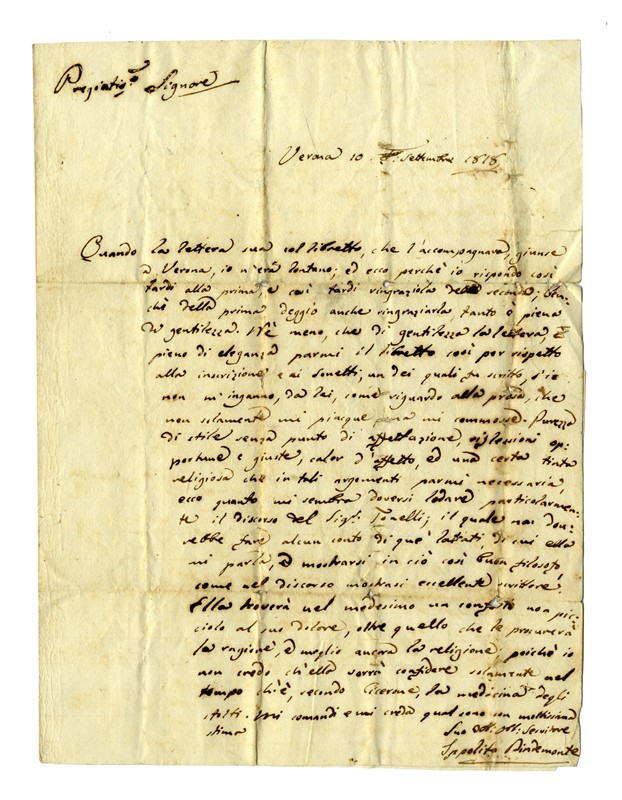 Pregiatis.mo Signore
Verona 10 Settembre 1818
Quando la lettera sua col libretto, che l'accompagnava, giunse
a Verona, io n'era lontano; ed ecco perchè io rispondo così
tardi alla prima, e così tardi ringraziola della seconda; ben-
chè della prima deggio anche ringraziarla tanto è piena
di gentilezza. Nè meno, che di gentilezza la lettera, è
pieno di eleganza parmi il libretto così per rispetto
alla inscrizione e ai sonetti, un dei quali fu scritto, s'io
non m'inganno, da lei, come riguardo alla prosa, che
non solamente mi piacque ma mi commosse. Purezza
di stile senza punto di affettazione, riflessioni op-
portune e giuste, calor d'affetto, ed una certa tinta
religiosa che in tali argomenti parmi necessaria,
ecco quanto mi sembra doversi lodare particolarmen-
te il discorso del Sig.r Tonelli; il quale non dov-
rebbe fare alcun conto di que' latrati di cui ella
mi parla, e mostrarsi in ciò così buon filosofo,
come nel discorso mostrasi eccellente scrittore.
Ella troverà nel medesimo un conforto non pic-
ciolo al suo dolore, oltre quello che le procurerà
la ragione, e meglio ancora la religione; poichè io
non credo ch'ella vorrà confidare solamente nel
tempo ch'è, secondo Cicerone, la medicina degli
stolti. Mi comandi e mi creda qual sono con moltissima
stima
Suo Servitore
Ippolito Pindemonte